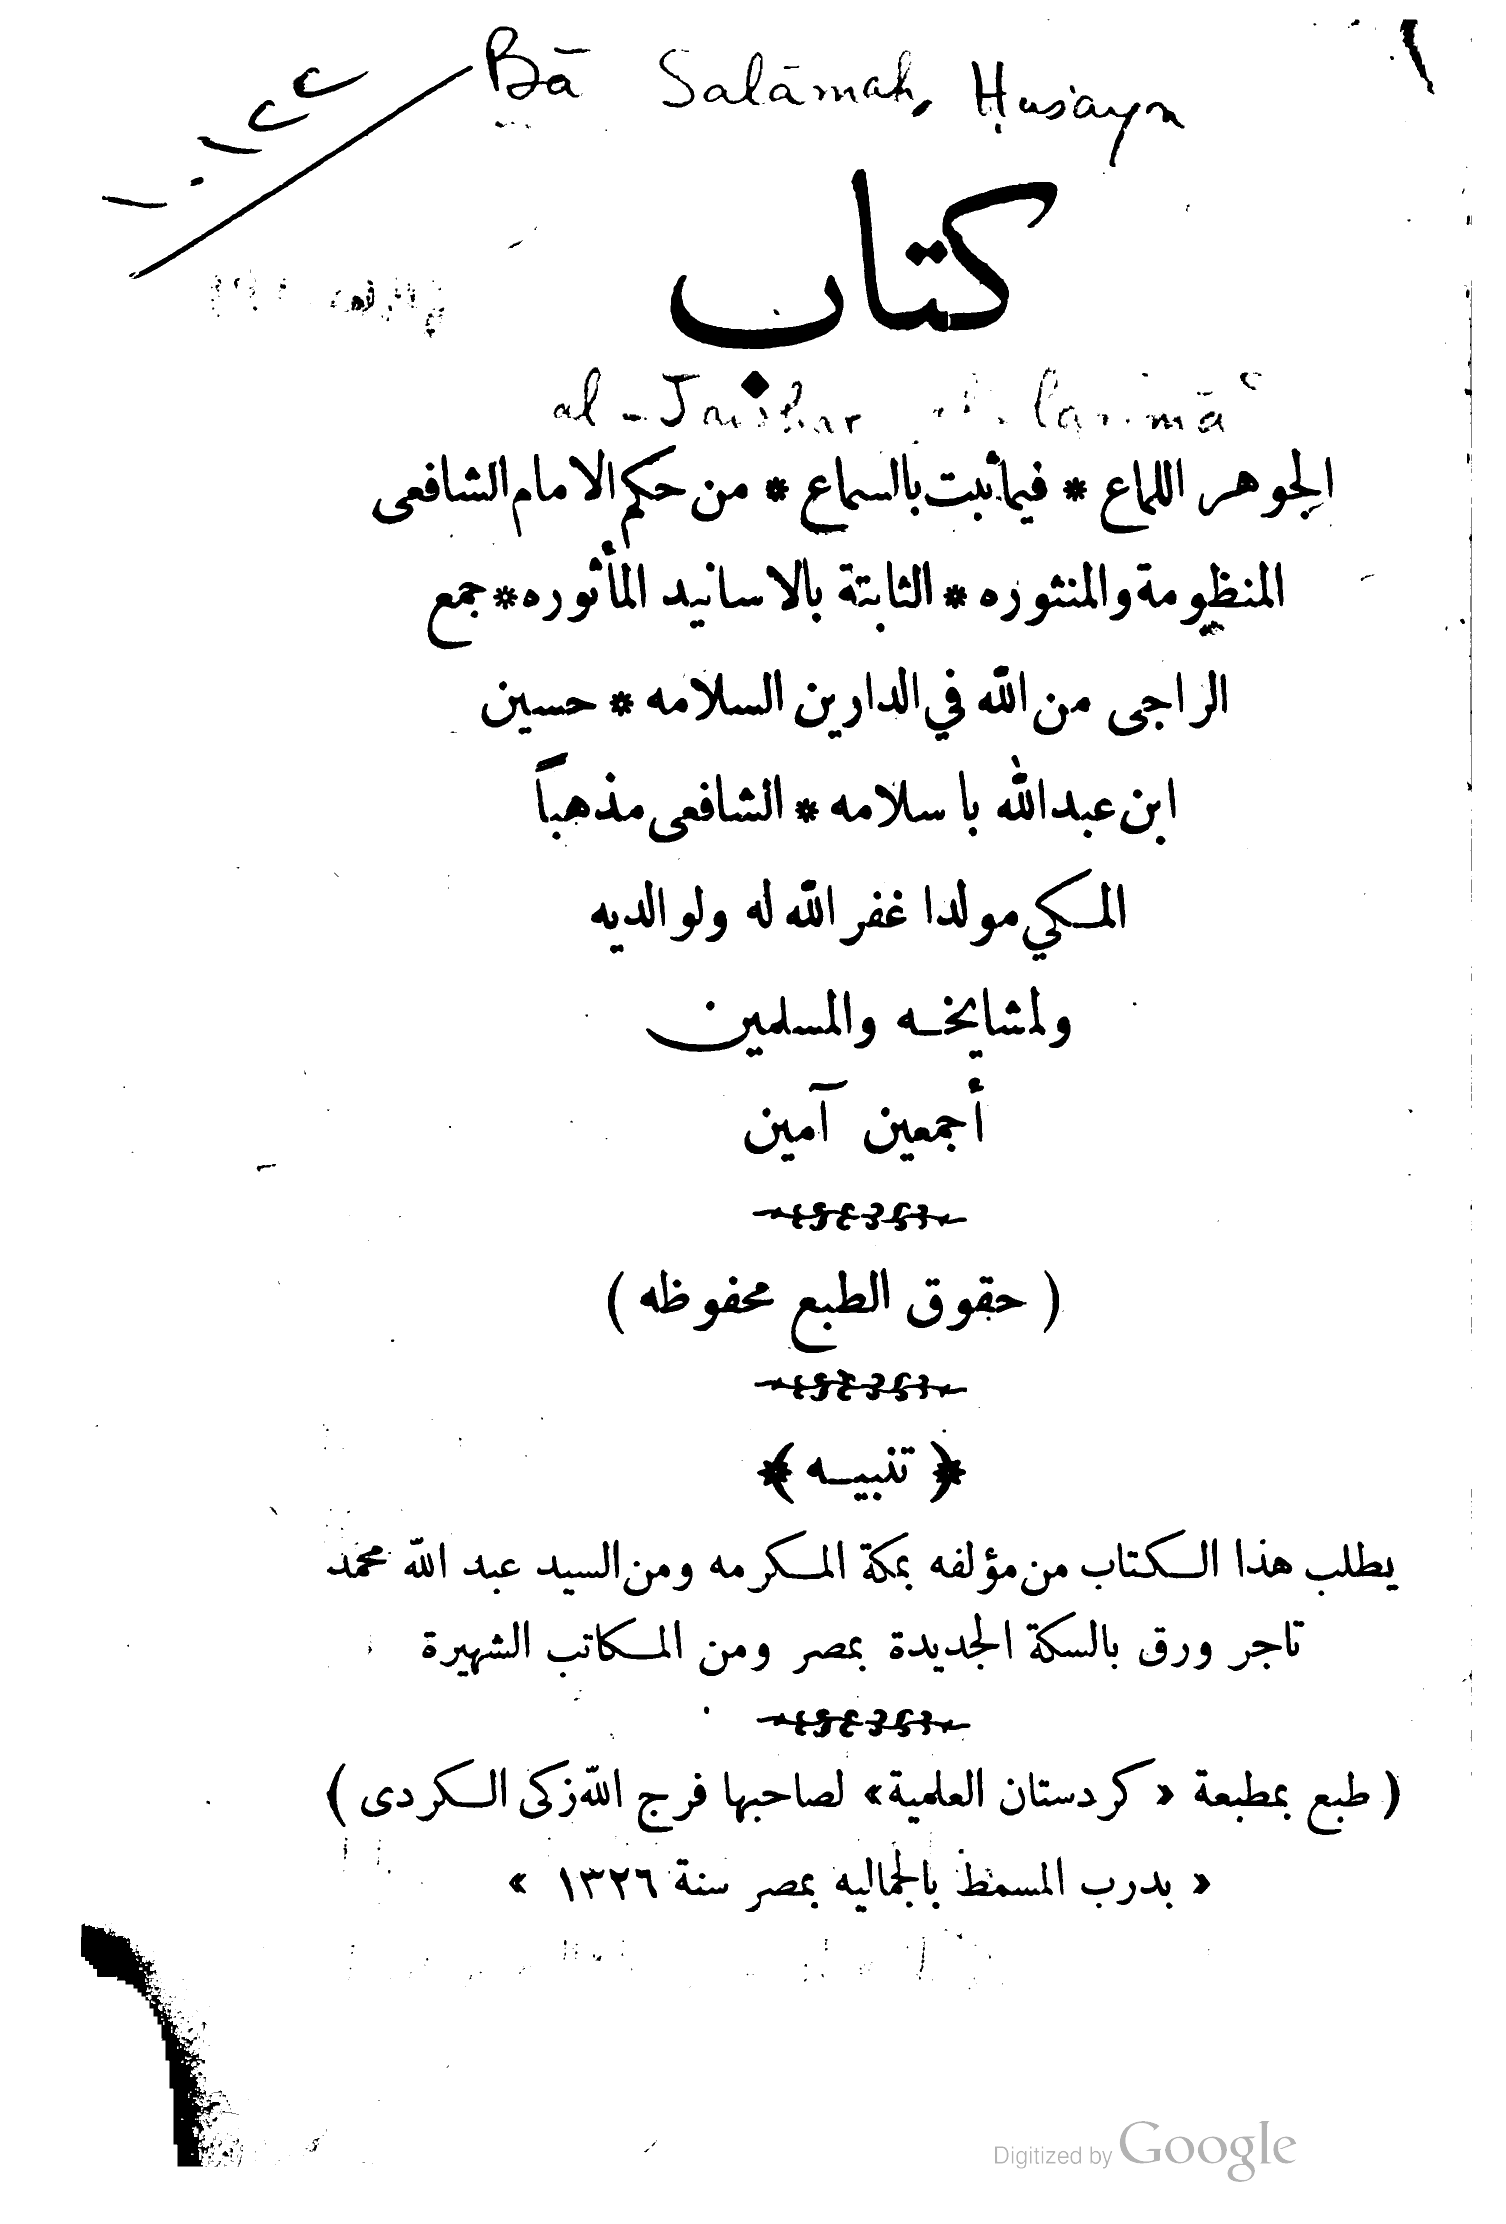 Bā Salāmah, Ḥusayn
كتاب
al-Jawhar
الجوهر اللماع * فيما ثبت بالسماع * من حكم الامام الشافعى
المنظومة والمنثوره * الثابتة بالاسانيد المأثوره * جمع
الراجى من الله في الدارين السلامه * حسين
ابن عبدالله با سلامه * الشافعى مذهباً
المكي مولدا غفر الله له ولوالديه
ولمشايخه والمسلمين
أجمعين آمين
( حقوق الطبع محفوظه )
﴿ تنبيه ﴾
يطلب هذا الكتاب من مؤلفه بمكة المكرمه ومن السيد عبد الله محمد
تاجر ورق بالسكة الجديدة بمصر ومن المكاتب الشهيرة
( طبع بمطبعة « كردستان العلمية » لصاحبها فرج الله زكى الكردى )
« بدرب المسمط بالجماليه بمصر سنة ١٣٢٦ »
Digitized by Google